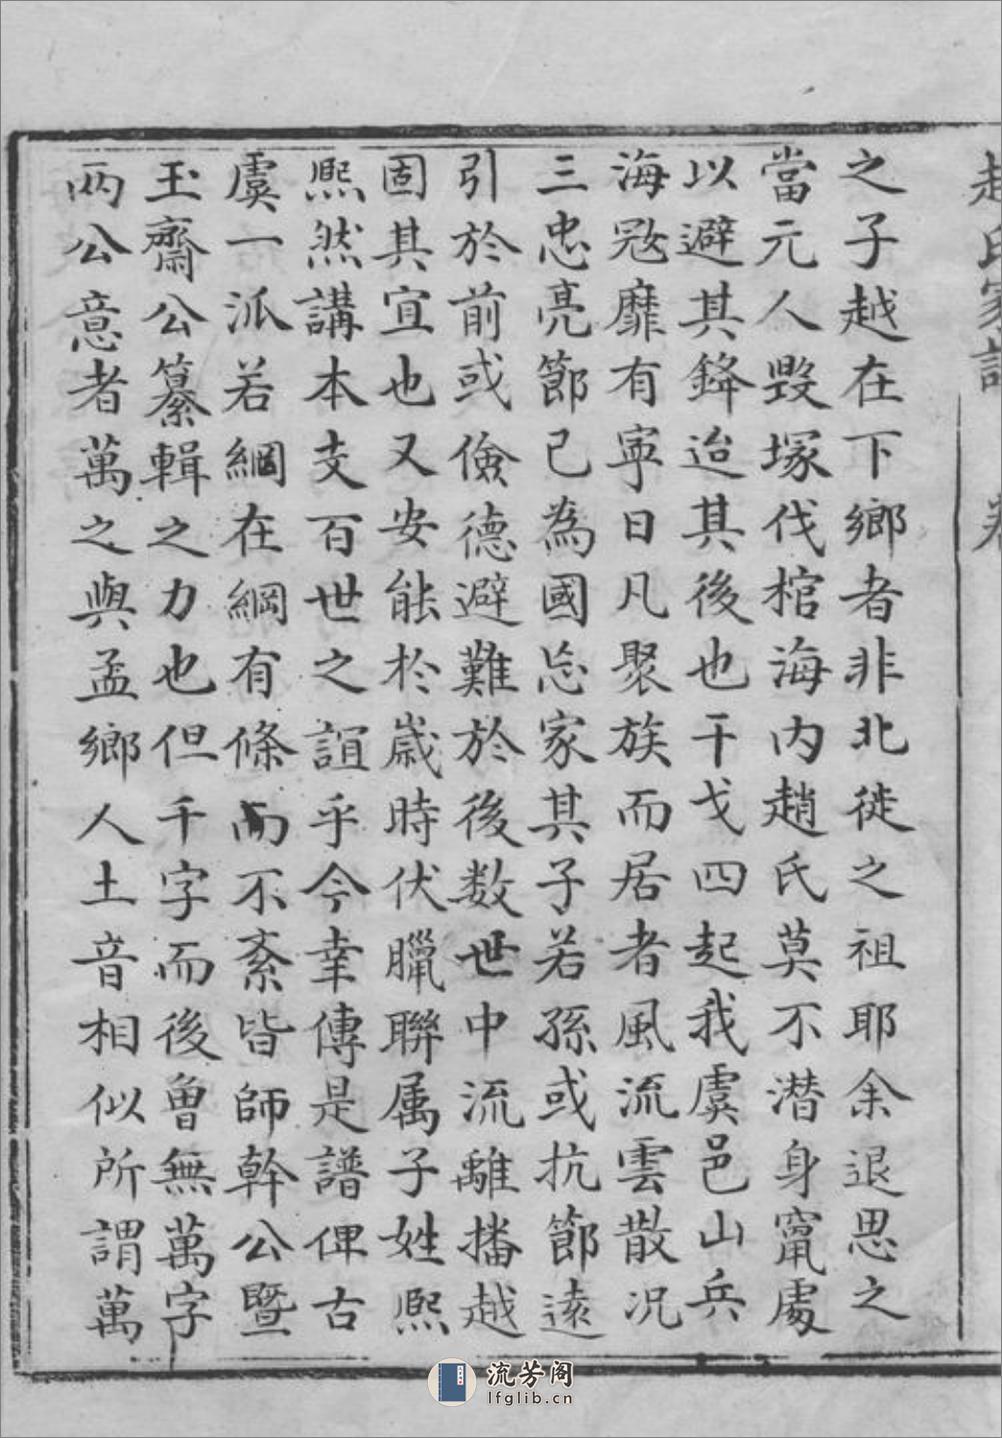 趙氏家譜 卷
之子越在下鄉者非北徙之祖耶余退思之
當元人毀塚伐棺海內趙氏莫不潛身竄處
以避其鋒迨其後也干戈四起我虞邑山兵
海寇靡有寧日凡聚族而居者風流雲散況
三忠亮節已為國忘家其子若孫或抗節遠
引於前或儉德避難於後数世中流離播越
固其宜也又安能於歲時伏臘聯属子姓熙
熙然講本支百世之誼乎今幸傳是譜俾古
虞一派若綱在綱有條而不紊皆師幹公暨
玉齋公纂輯之力也但千字而後魯無萬字
两公意者萬之與孟鄉人土音相似所謂萬
流芳阁
lfglib.cn